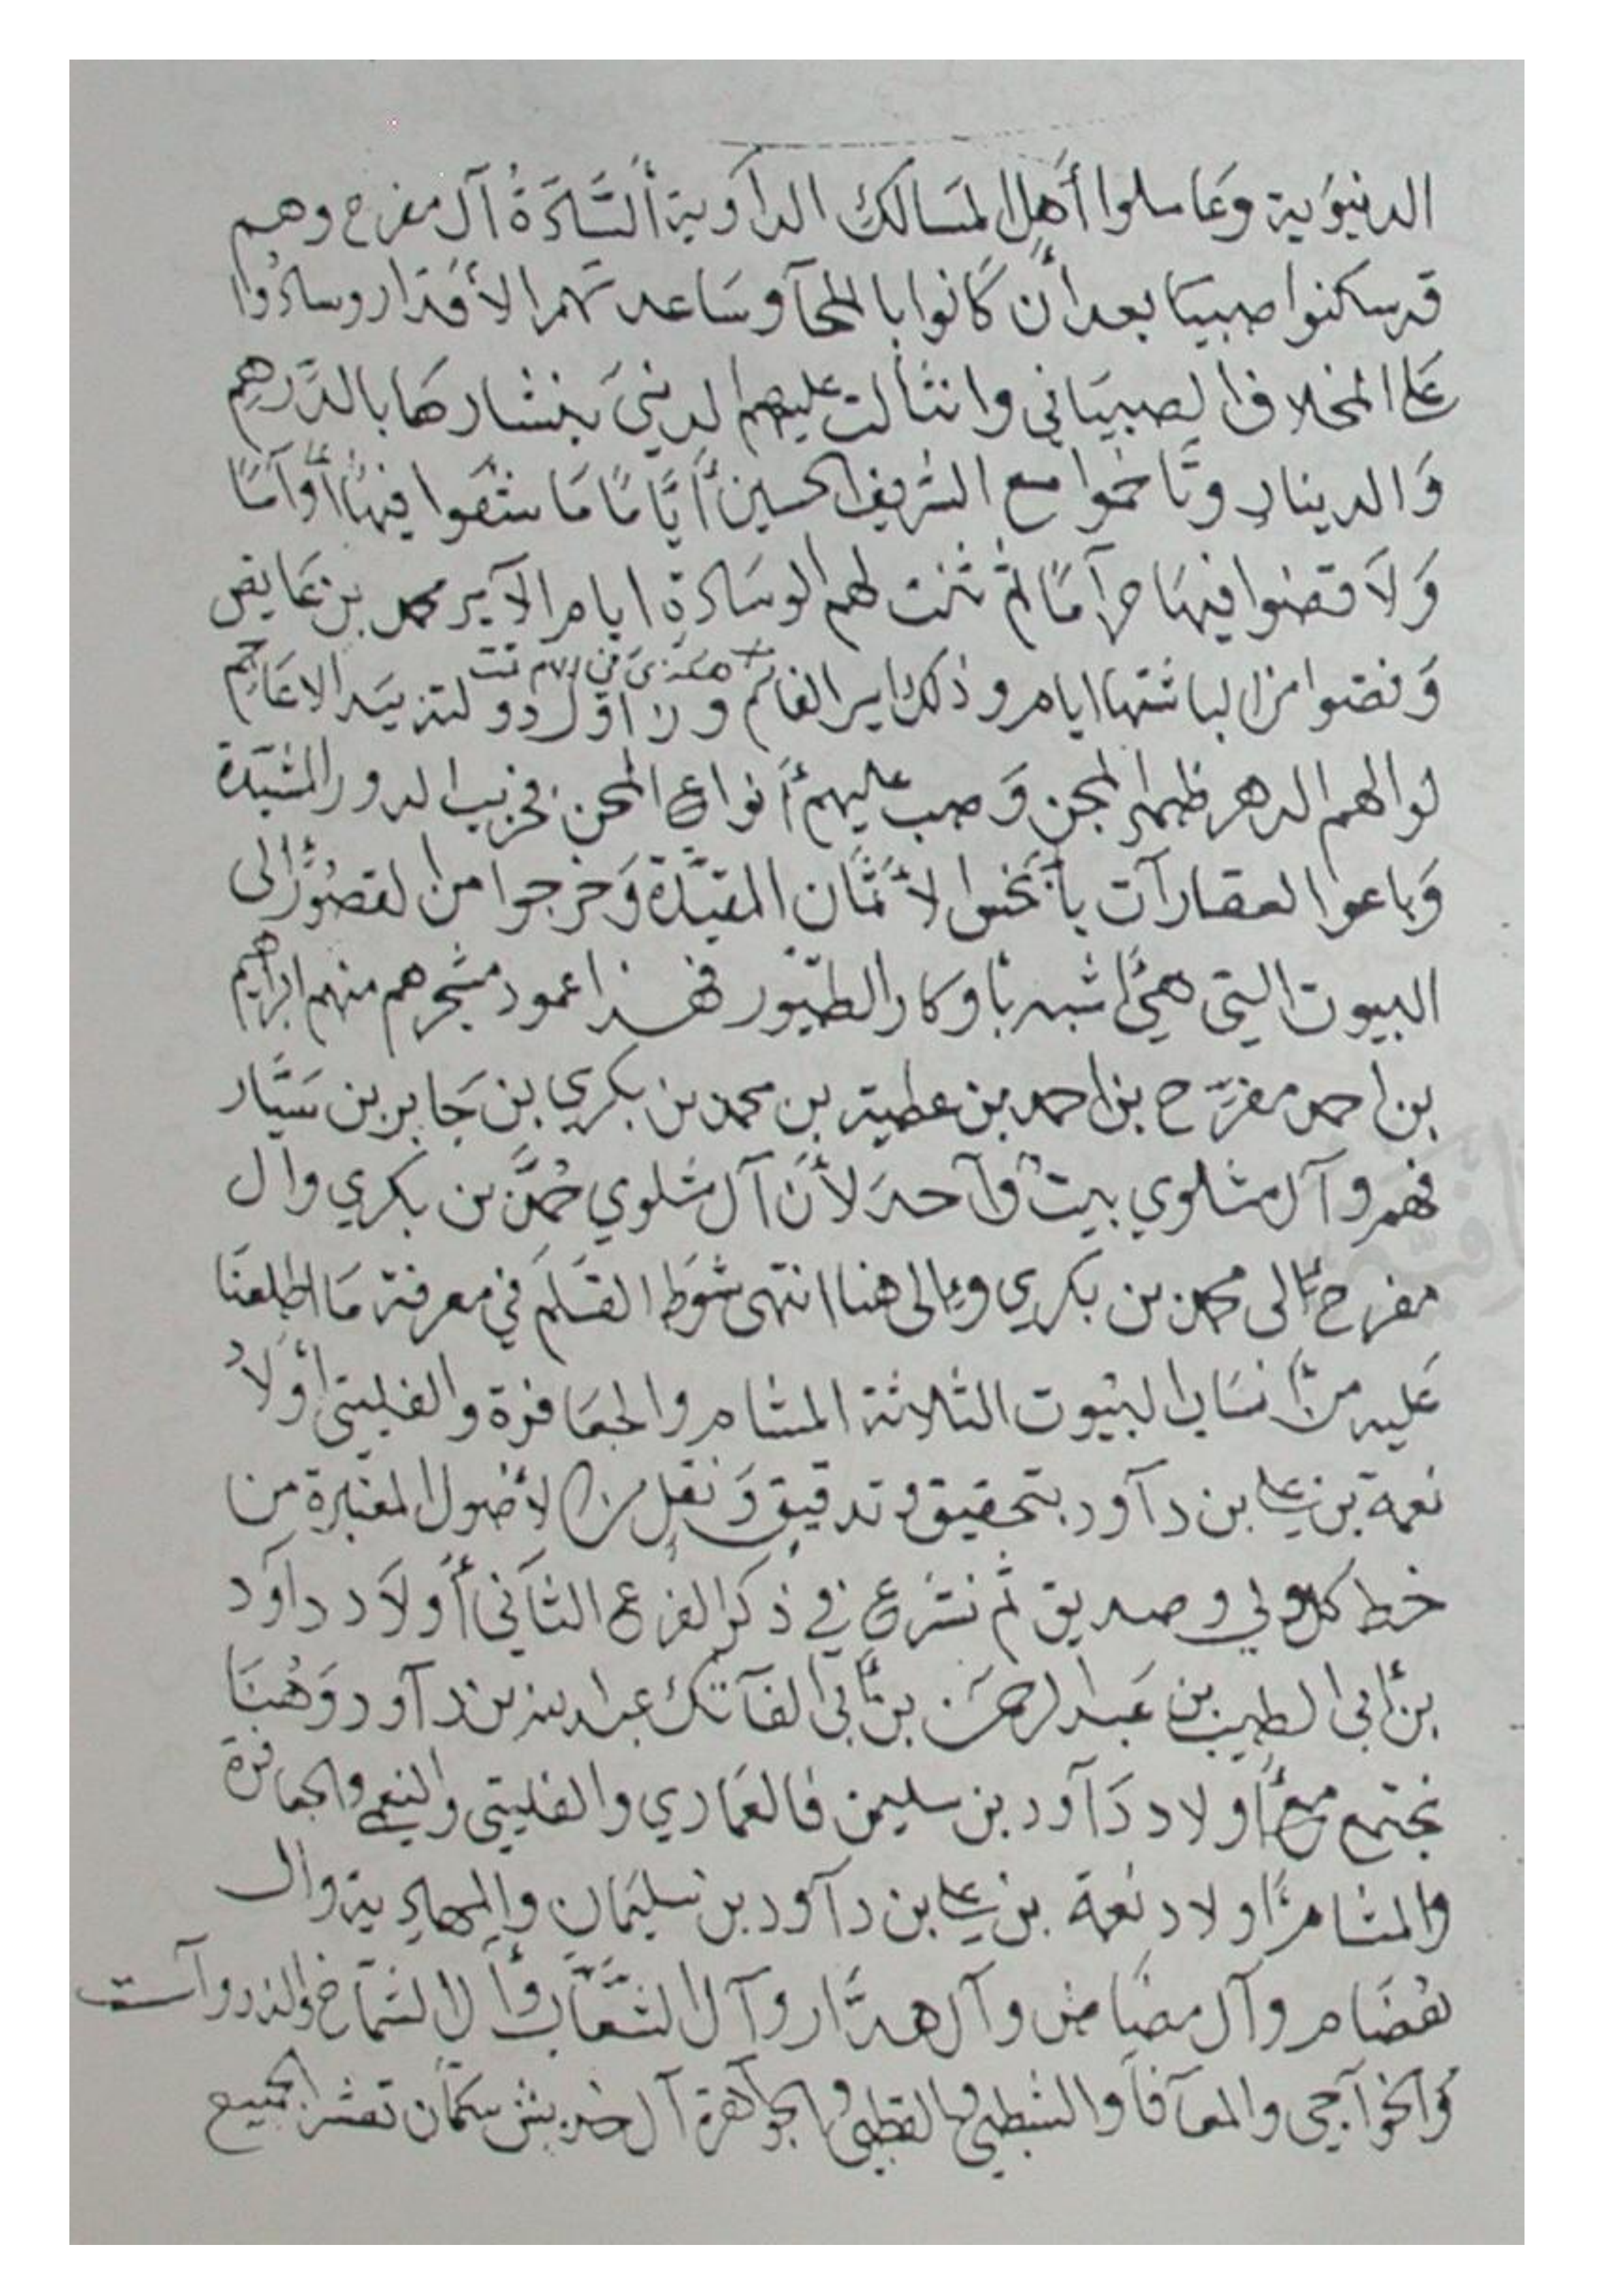 الدنيوية وعاملوا أهل المسالك الداوية السَّادَةُ آل مفرح وهم
قد سكنوا صبيا بعد أن كانوا بالملحا وساعدتهم الأقدار وسادوا
على المخلاف الصبياني وانثالت عليهم الدنيى بنثارها بالدرهم
وَالدينار وتاخموا مع الشريف الحسين أيّامًا مَا شقوا فيها أوامًا
وَلاَ قضوا فيها مرآمًا ثم ثنت لهم الوسادة ايام الأمير محمد بن عايض
لوا لهم الدهر ظهر المجن وَصب عليهم أنواع المحن فخربت الدور المشيدة
وَباعوا العقارآت بأبخس الأثمان وَخرجوا من القصُور إلى
البيوت التي هي أشبه بأوكار الطيور فهذا عمود مشجرهم منهم ابراهيم
بن احمد مفرّح بن احمد بن عطية بن محمد بن بكري بن جَابر بن سَيَّار
فهم وآل مثلوي بيت وآحد لأن آل مثلوي حُمَّد بن بكري وال
مفرح إلى محمد بن بكري وإلى هنا انتهى شوط القلم في معرفة مَا اطلعنَا
عَليه من أنسَاب البيُوت الثلاثة المشامر والجعَافرة والفليتي أولادُ
نعمة بن علي بن دآود بتحقيق وتدقيق وَنقل من الأصُول المعتبرة من
خط كل ولي وصديق ثم نشرع في ذكر الفرع الثاني أولاَد داوَد
بن أبي الطيب بن عَبد الرحمن بن أبي الفآتك عبد الله بن دآود وَهُنَا
نجتمع مع أولاد دَآود بن سليمن فالعمَاري والفليتي والنعمي والجعافرة
والمشامر أولاد نعمة بن علي بن دآود بن سليمَان والمهادية وال
نعضَام وآل مضَامن وآل هدَّار وآل النعَّاب وآل الشمَّاخ والذروآت
وَالخوآجي والمعآفا والشطبي والقطبي والجوآهرة آل خديش سكمان تعشر الجميع